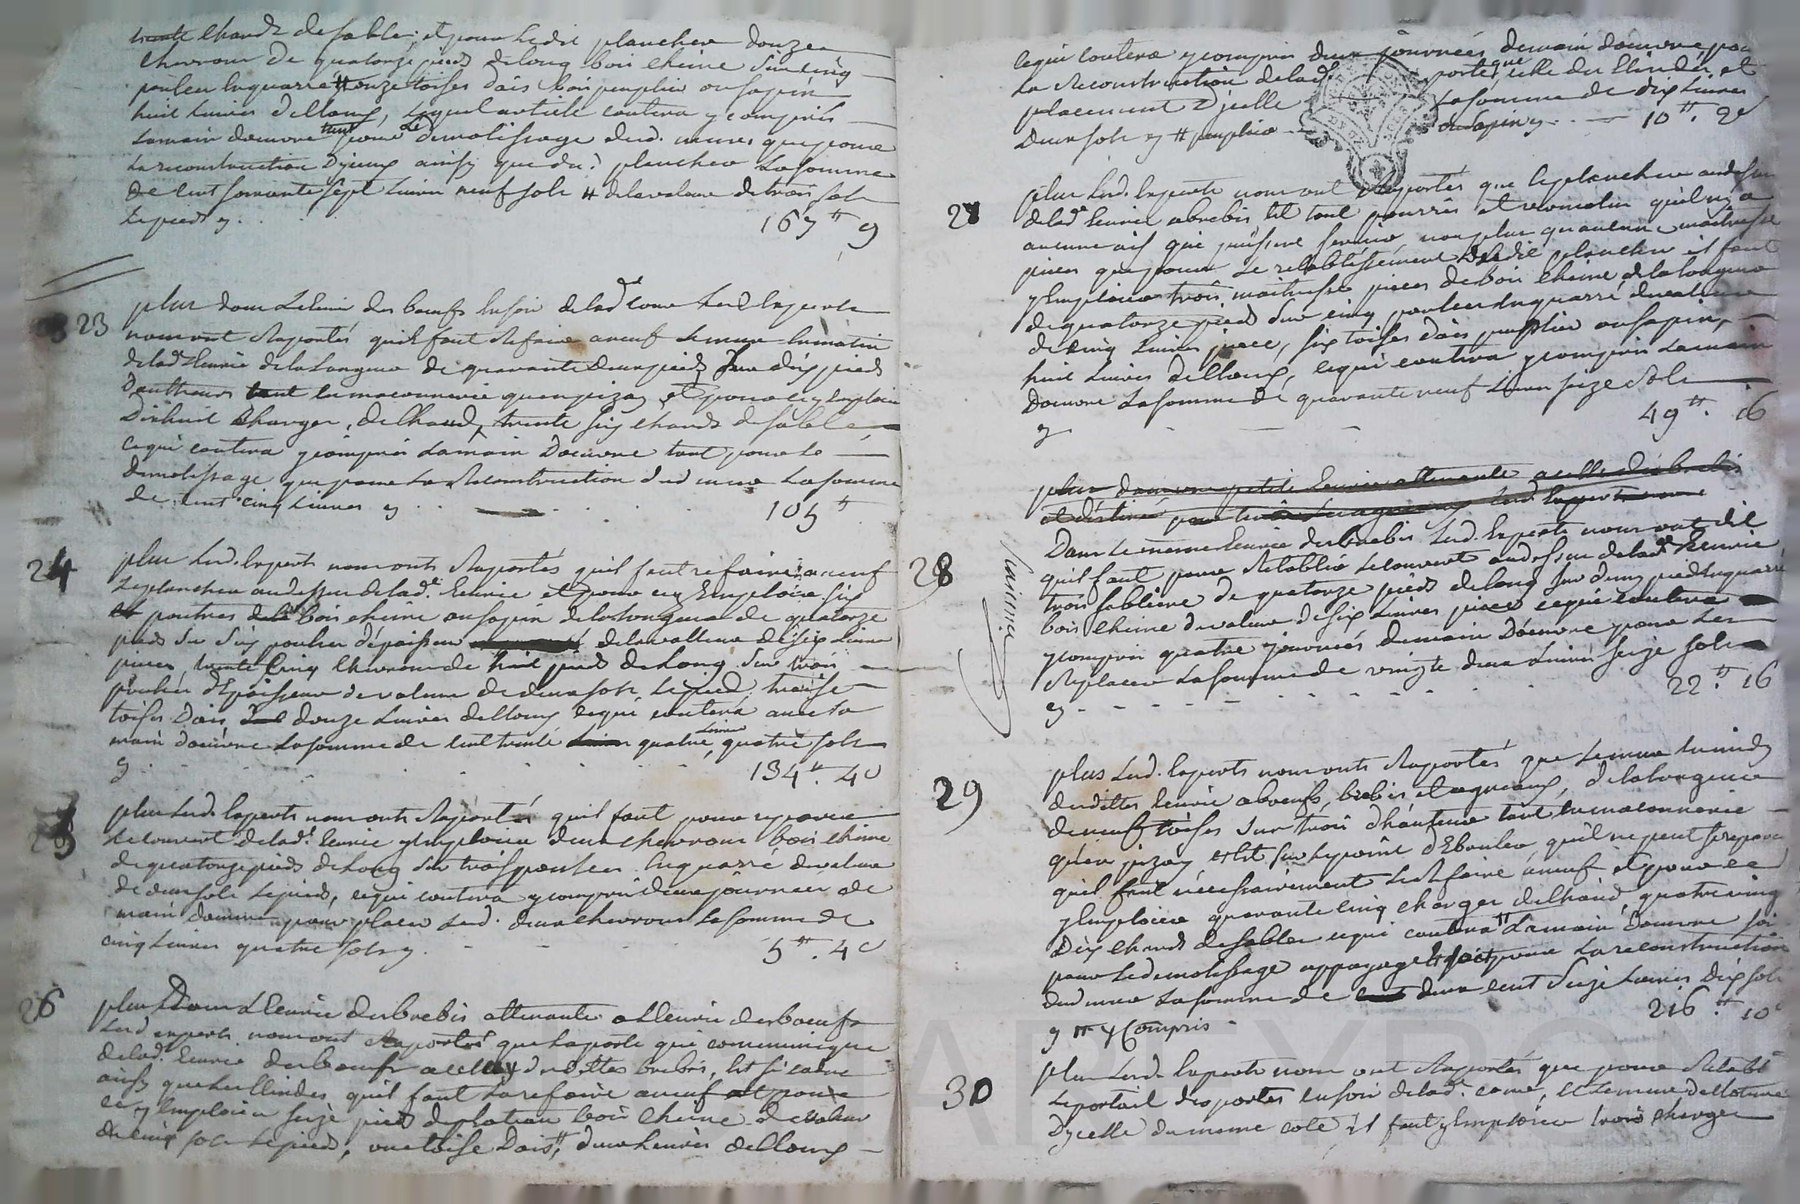 chards de sable; et pour ledit plancher douze
chevrons de quatorze pieds de long bois chêne sur cinq
pouces en quarré # onze toises dais bois peuplier ou sapin
huit livres de cloux, lequel article coutera y compris
la main d'œuvre tant pour le demolissage desd. murs que pour
la reconstruction d'yceux ainsy que du d. plancher la somme
de cent soixante sept livres neuf sols # de la valeur de trois sols
le pied y
167  tt 9
23
plus dans l'ecurie des bœufs au soir de lad. cour lesd. experts
nous ont raportés qu'il faut refaire a neuf le mur au matin
de lad. ecurie de la longueur de quarante deux pieds sur dix pieds
d'hauteur tant en maconnerie qu'en pizay, et pour ce y employer
dixhuit charges de chaud, trente six chards de sable
ce qui coutera y compris la main d'œuvre tant pour le
demolissage que pour la reconstruction dud. mur la somme
de cent cinq livres cy
105 tt
24
plus lesd. experts nous onts raportés qu'il faut refaire a neuf
le plancher au dessus de lad. ecurie et pour ce y employer six
poutres bois chêne ou sapin de la longueur de quatorze
pieds sur six pouces d'épaisseur de la valleur de six livres
pieces, trente cinq chevrons de huit pieds de long sur trois
pouces d'épaisseur de valeur de deux sols le pied, treize
toises dais douze livres de cloux ce qui coutera avec la
main d'œuvre la somme de cent trente quatre livres quatre sols
y
134 tt. 4
plus lesd. experts nous onts raportés qu'il faut pour reparer
le couvert de lad. ecurie y employer deux chevrons bois chêne
de quatorze pieds de long sur trois pouces en quarré de valeur
de deux sols le pied, ce qui coutera y compris deux journées de
main d'œuvre pour placer lesd. deux chevrons la somme de
cinq livres quatre sols y
5 tt. 4
26
plus dans l'ecurie des brebis attenante a l'ecurie des bœufs
lesd experts nous ont raportés que la porte qui communique
de lad. ecurie des bœufs a celle desdittes brebis, est si
ainsy que ses qu'il faut la refaire a neuf et pour
ce y employer seize pieds de plateau bois chêne de valeur
de cinq sols le pied, une toise dais, deux livres de cloux
ce qui coutera y compris deux journées de main d'œuvre, pour
la reconstruction de lad. porte, que celle du et
placement d'ycelle la somme de dix livres
deux sols y # peuplier ou sapin y
10 tt. 2
27
plus lesd. experts nous ont raportés que le plancher au dessus
de lad. ecurie a brebis est tout pourris et vermoulu qu'il n'y a
aucune ais qui puisse servir non plus qu'aucune maitresse
pieces que pour le retablissement dudit plancher il faut
y employer trois maitresses pieces de bois chêne de la longueur
de quatorze pieds sur cinq pouces en quarré de valeur
de cinq livres piece, six toises dais peuplier ou sapin,
huit livres de cloux, ce qui coutera y compris la main
d'œuvre la somme de quarante neuf livres seize sols
y
49 tt. 16
plus dans une petite ecurie attenante a celle des brebis
28
Dans la même ecurie des brebis lesd. experts nous ont dit
qu'il faut pour retablir le couvert au dessus de lad. ecurie
trois sabliere de quatorze pieds de long sur demy pied en quarré
bois chêne de valeur de six livres piece ce qui coutera
y compris quatre journées de main d'œuvre pour les
replacer la somme de vingte deux livres seize sols
cy
22 tt. 16
29
plus lesd. experts nous onts raportés que le mur
desdittes ecurie a bœufs, brebis et agneaux, de la longueur
de neuf toises sur trois d'hauteur tant en maconnerie
qu'en pizay est sur le point d'ebouler, qu'il ne peut se reparer
qu'il faut necessairement le refaire a neuf et pour ce
y employer quarante cinq charges de chaud, quatre vingt
dix chards de sable ce qui coutera # la main d'œuvre soit
pour le demolissage appuyage soit pour la reconstruction
dud. mur la somme de deux cent seize livres dix sols
y # y Compris
216 tt 10
30
plus lesd. experts nous ont raportés que pour retablir
le portail des portes au soir de lad. cour, et le mur de cloture
d'ycelle du meme coté il faut y employer trois charges